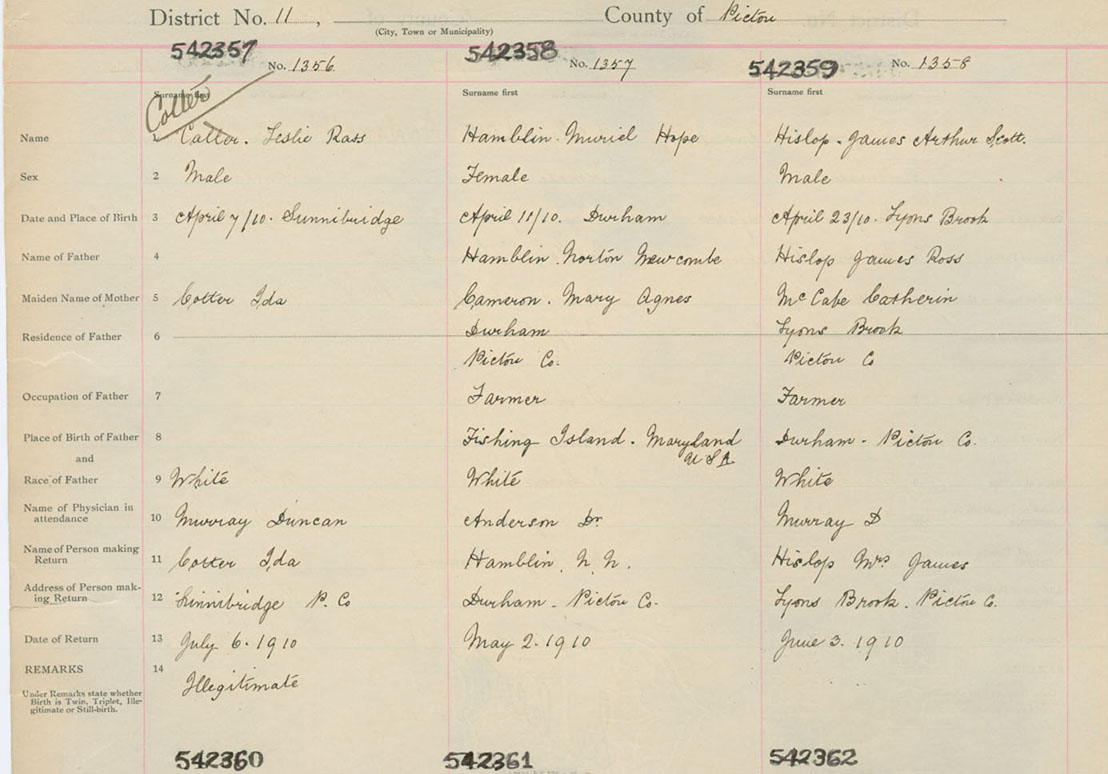 District No. 11, County of Pictou
(City, Town or Municipality)
542357 542358 542359
No. 1356 No. 1357 No. 1358
Surname first Surname first Surname first
Cotter
Name 1 Cotter. Leslie Ross Hamblin. Muriel Hope Hislop. James Arthur Scott.
Sex 2 Male Female Male
Date and Place of Birth 3 April 7/10. Sunnibridge April 11/10. Durham April 23/10. Lyons Brook
Name of Father 4 Hamblin. Norton Newcombe Hislop James Ross
Maiden Name of Mother 5 Cotter Ida Cameron. Mary Agnes McCabe Catherin
Residence of Father 6 Durham Lyons Brook
Pictou Co. Pictou C
Occupation of Father 7 Farmer Farmer
Place of Birth of Father 8 Fishing Island. Maryland Durham - Pictou Co.
U S A
and
Race of Father 9 White White White
Name of Physician in attendance 10 Murray Duncan Anderson Dr Murray D
Name of Person making Return 11 Cotter Ida Hamblin. N. N. Hislop Mrs James
Address of Person making Return 12 Sunnibridge P. Co Durham - Pictou Co. Lyons Brook. Pictou C.
Date of Return 13 July 6. 1910 May 2. 1910 June 3. 1910
REMARKS 14 Illegitimate
Under Remarks state whether
Birth is Twin, Triplet, Ille-
gitimate or Still-birth.
542360 542361 542362